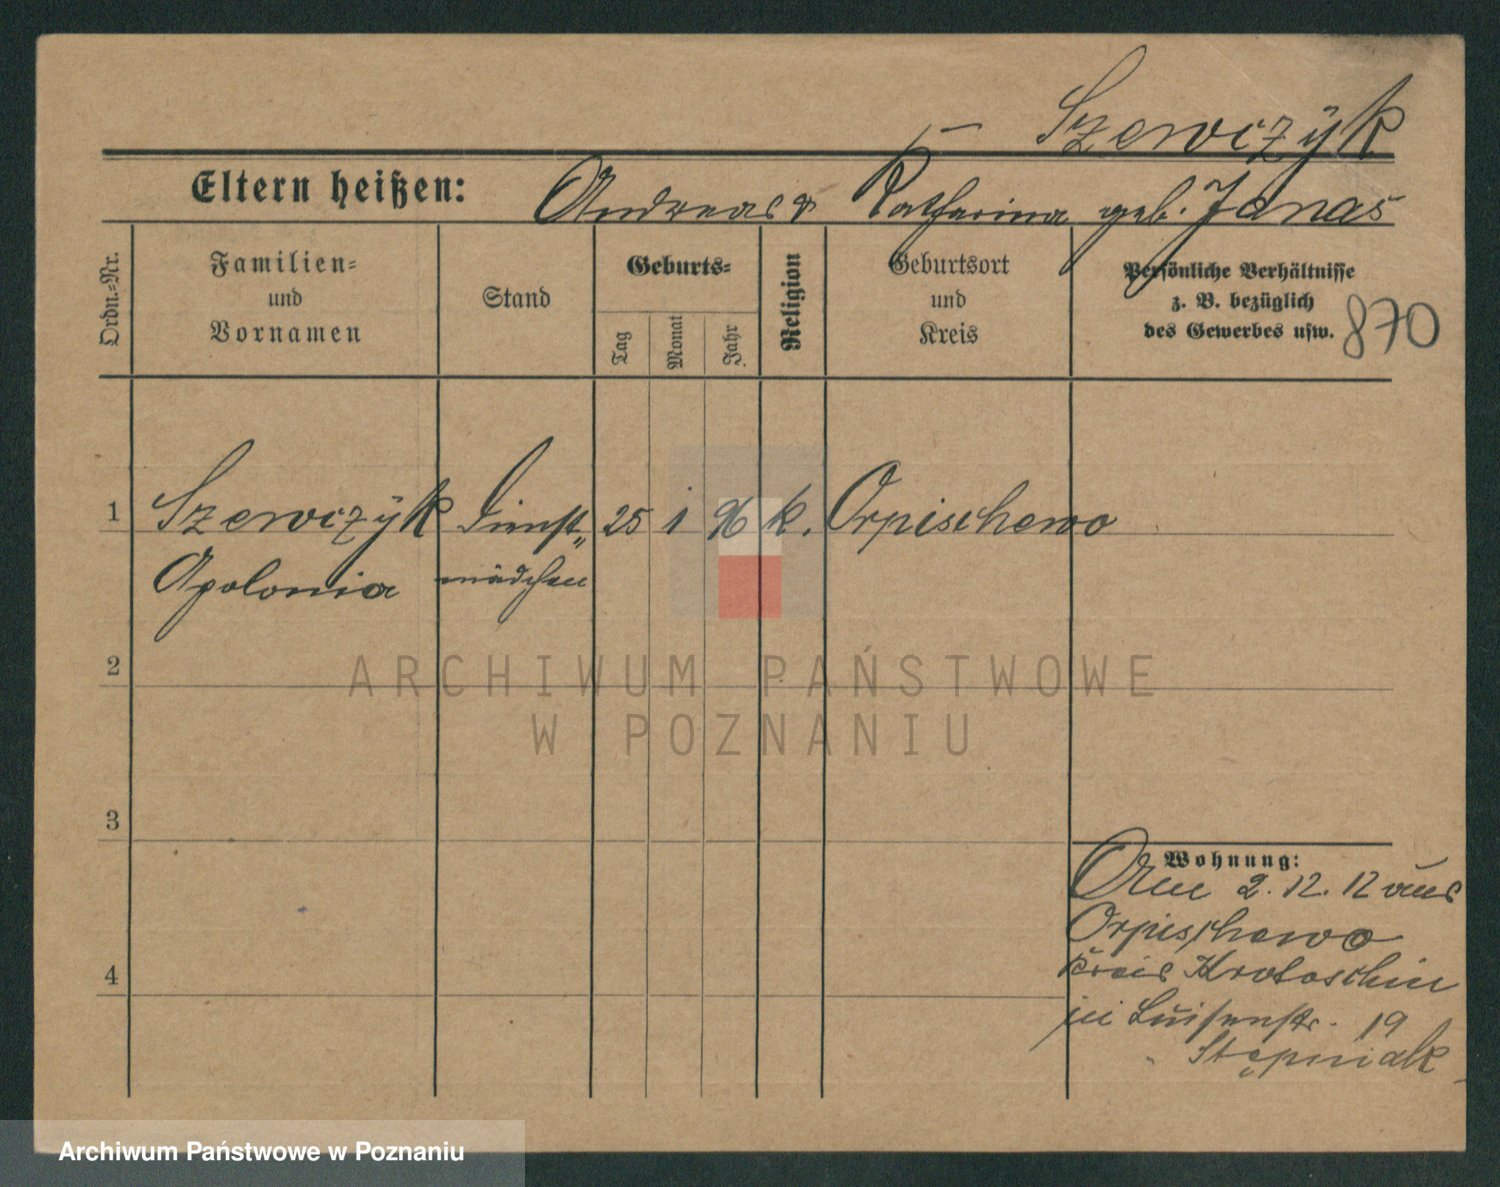 Szewczÿk
Eltern heißen: Andreas & Katharina geb. Janas
Ordn.=Nr.
Familien=
und
Vornamen
Stand
Geburts=
Tag
Monat
Jahr
Religion
Geburtsort
und
Kreis
Persönliche Verhältnisse
z. B. bezüglich
des Gewerbes usw.
870
1 Szewczÿk Dienst„ 25 1 96 k. Orpischewo
Apolonia mädchen
2
ARCHIWUM PAŃSTWOWE
W POZNANIU
3
Wohnung:
2. 12. 12 aus
Orpischewo
Kreis Krotoschin
Luisenstr. 19
Stępniak
4
Archiwum Państwowe w Poznaniu